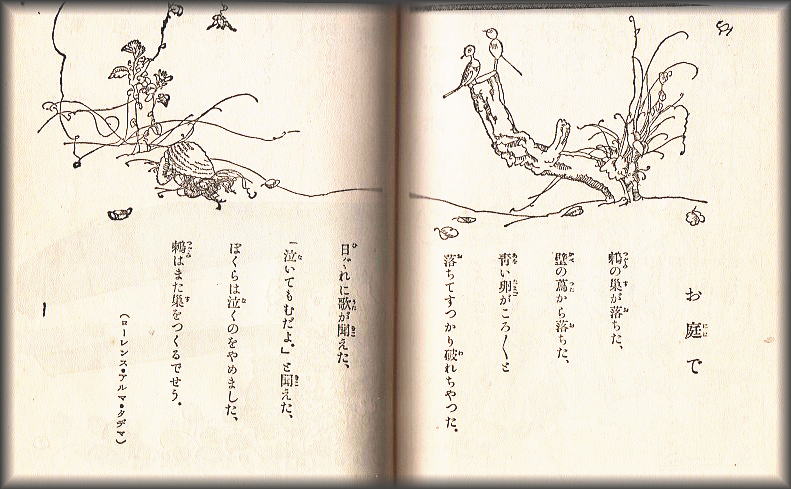 お庭で
鶫の巣が落ちた、
壁の蔦から落ちた、
青い卵がころ〱と
落ちてすつかり破れちやつた。
日ぐれに歌が聞えた、
「泣いてもむだよ。」と聞えた、
ぼくらは泣くのをやめました、
鶫はまた巣をつくるでせう。
(ローレンス・アルマ・タデマ)